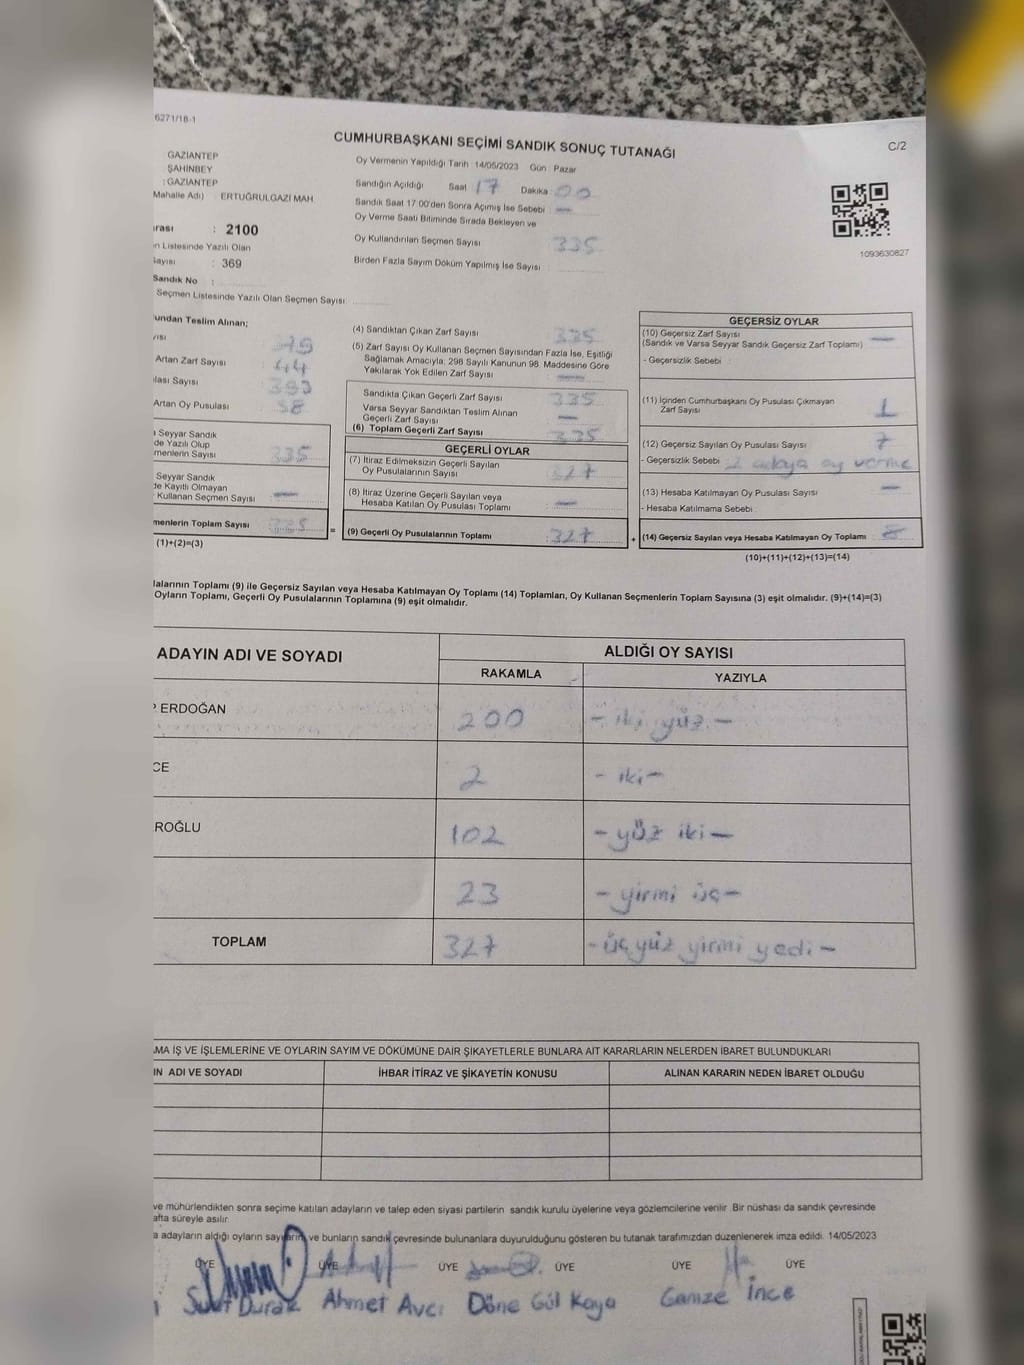 6271/18-1
CUMHURBAŞKANI SEÇİMİ SANDIK SONUÇ TUTANAĞI
C/2
GAZİANTEP
ŞAHİNBEY
: GAZİANTEP
Mahalle Adı) : ERTUĞRULGAZİ MAH.
ırası : 2100
n Listesinde Yazılı Olan
ayısı : 369
Sandık No :
Seçmen Listesinde Yazılı Olan Seçmen Sayısı:
Oy Vermenin Yapıldığı Tarih :14/05/2023 Gün : Pazar
Sandığın Açıldığı Saat : 17 Dakika : 00
Sandık Saat 17:00'den Sonra Açılmış İse Sebebi : —
Oy Verme Saati Bitiminde Sırada Bekleyen ve
Oy Kullandırılan Seçmen Sayısı : 335
Birden Fazla Sayım Döküm Yapılmış İse Sayısı :
1093630827
undan Teslim Alınan;
Artan Zarf Sayısı : 44
lası Sayısı
Artan Oy Pusulası : 58
ı Seyyar Sandık
de Yazılı Olup
menlerin Sayısı : 335
Seyyar Sandık
de Kayıtlı Olmayan
Kullanan Seçmen Sayısı : —
menlerin Toplam Sayısı : 335
(1)+(2)=(3)
(4) Sandıktan Çıkan Zarf Sayısı : 335
(5) Zarf Sayısı Oy Kullanan Seçmen Sayısından Fazla İse, Eşitliği
Sağlamak Amacıyla; 298 Sayılı Kanunun 98. Maddesine Göre
Yakılarak Yok Edilen Zarf Sayısı : —
Sandıkta Çıkan Geçerli Zarf Sayısı : 335
Varsa Seyyar Sandıktan Teslim Alınan
Geçerli Zarf Sayısı : —
(6) Toplam Geçerli Zarf Sayısı : 335
GEÇERLİ OYLAR
(7) İtiraz Edilmeksizin Geçerli Sayılan
Oy Pusulalarının Sayısı : 327
(8) İtiraz Üzerine Geçerli Sayılan veya
Hesaba Katılan Oy Pusulası Toplamı : —
= (9) Geçerli Oy Pusulalarının Toplamı : 327
GEÇERSİZ OYLAR
(10) Geçersiz Zarf Sayısı : —
(Sandık ve Varsa Seyyar Sandık Geçersiz Zarf Toplamı)
- Geçersizlik Sebebi :
(11) İçinden Cumhurbaşkanı Oy Pusulası Çıkmayan
Zarf Sayısı : 1
(12) Geçersiz Sayılan Oy Pusulası Sayısı : 7
- Geçersizlik Sebebi : 2 adaya oy verme
(13) Hesaba Katılmayan Oy Pusulası Sayısı : —
- Hesaba Katılmama Sebebi :
+ (14) Geçersiz Sayılan veya Hesaba Katılmayan Oy Toplamı : 8
(10)+(11)+(12)+(13)=(14)
lalarının Toplamı (9) ile Geçersiz Sayılan veya Hesaba Katılmayan Oy Toplamı (14) Toplamları, Oy Kullanan Seçmenlerin Toplam Sayısına (3) eşit olmalıdır. (9)+(14)=(3)
Oyların Toplamı, Geçerli Oy Pusulalarının Toplamına (9) eşit olmalıdır.
ADAYIN ADI VE SOYADI
ALDIĞI OY SAYISI
RAKAMLA YAZIYLA
ERDOĞAN 200 - iki yüz -
CE 2 - iki -
ROĞLU 102 - yüz iki -
23 - yirmi üç -
TOPLAM 327 - üç yüz yirmi yedi -
MA İŞ VE İŞLEMLERİNE VE OYLARIN SAYIM VE DÖKÜMÜNE DAİR ŞİKAYETLERLE BUNLARA AİT KARARLARIN NELERDEN İBARET BULUNDUKLARI
IN ADI VE SOYADI İHBAR İTİRAZ VE ŞİKAYETİN KONUSU ALINAN KARARIN NEDEN İBARET OLDUĞU
ve mühürlendikten sonra seçime katılan adayların ve talep eden siyasi partilerin sandık kurulu üyelerine veya gözlemcilerine verilir. Bir nüshası da sandık çevresinde
afta süreyle asılır.
a adayların aldığı oyların sayıların ve bunların sandık çevresinde bulunanlara duyurulduğunu gösteren bu tutanak tarafımızdan düzenlenerek imza edildi. 14/05/2023
ÜYE ÜYE ÜYE ÜYE ÜYE ÜYE
Durak Ahmet Avcı Döne Gül Kaya Gamze İnce